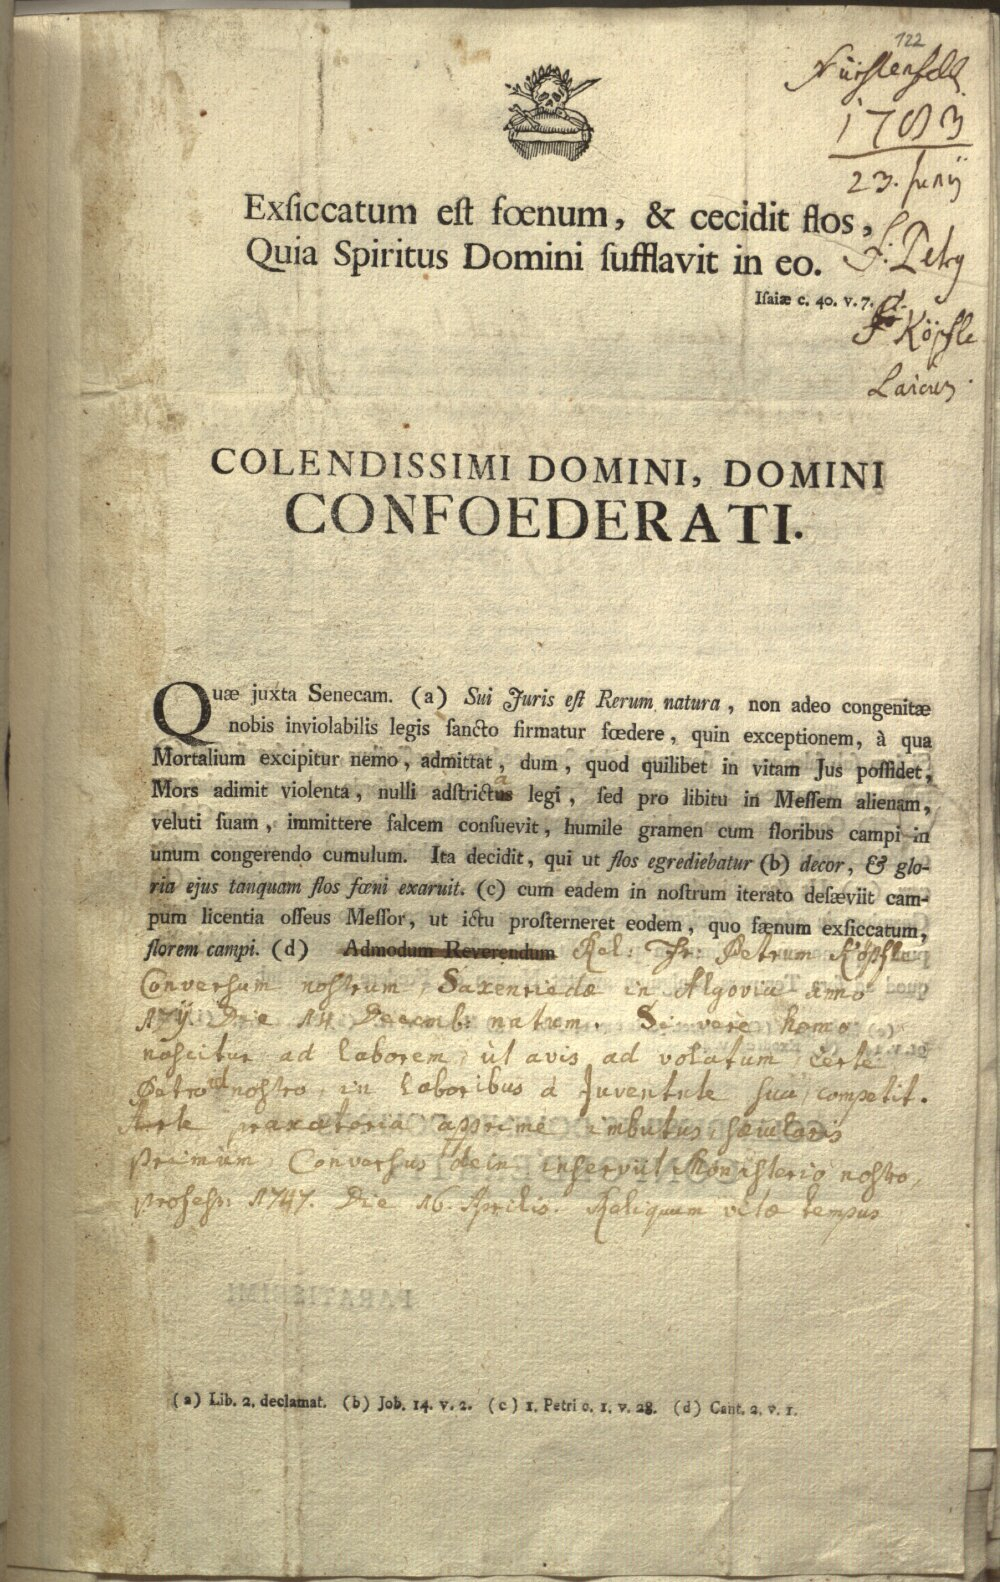 122
Fürstenfeld
1783
23. Junij
F. Petrg
F Köpfle
Laicus.
Exſiccatum eſt fœnum, & cecidit flos,
Quia Spiritus Domini ſufflavit in eo.
Iſaiæ c. 40. v. 7.
COLENDISSIMI DOMINI, DOMINI
CONFOEDERATI.
Quæ juxta Senecam. (a) Sui Juris eſt Rerum natura, non adeo congenitæ
nobis inviolabilis legis ſancto firmatur fœdere, quin exceptionem, à qua
Mortalium excipitur nemo, admittat, dum, quod quilibet in vitam Jus poſſidet,
Mors adimit violenta, nulli adſtricta legi, ſed pro libitu in Meſſem alienam,
veluti ſuam, immittere falcem conſuevit, humile gramen cum floribus campi in
unum congerendo cumulum. Ita decidit, qui ut flos egrediebatur (b) decor, & glo-
ria ejus tanquam flos fœni exaruit. (c) cum eadem in noſtrum iterato deſæviit cam-
pum licentia oſſeus Meſſor, ut ictu proſterneret eodem, quo fænum exſiccatum,
florem campi. (d) Admodum Reverendum Rel: Fr: Petrum Köpfle
Conversum nostrum Saxenriedæ in Algovia anno
Die 14 Decemb: natum. Si verè homo
nascitur ad laborem, ùt avis ad volatum, certe
Petro nostro in laboribus a Juventute sua competit.
Arte praxatoria apprime imbutus, sæcularis
primum, Conversus dein inserviit Monasterio nostro,
professus 1747. Die 16. Aprilis. Reliquum vitæ tempus
PARATISSIMI
(a) Lib. 2. declamat. (b) Job. 14. v. 2. (c) 1. Petri c. 1. v. 28. (d) Cant. 2. v. 1.